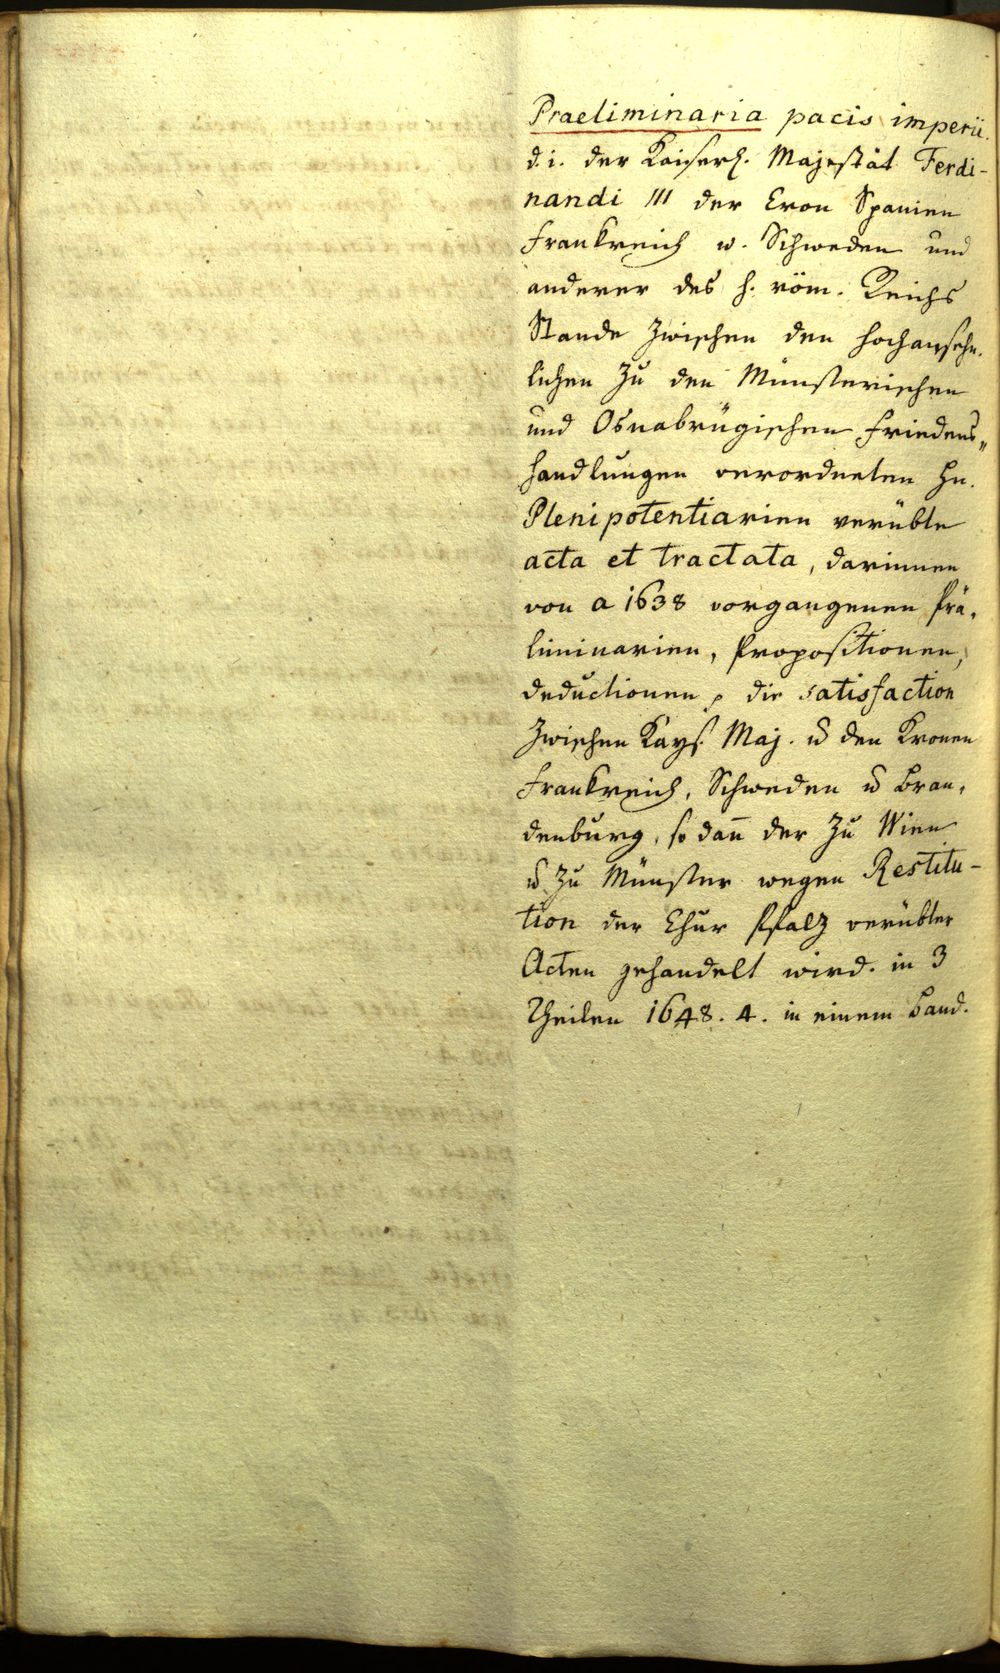 Praeliminaria pacis imperii.
d. i. der Kaiserl. Majestät Ferdi-
nandi III der Cron Spanien
Frankreich u. Schweden und
anderer des h. röm. Reichs
Stande zwischen den hochansehn-
lichen zu den Münsterischen
und Osnabrügischen Friedens-
handlungen verordneten Hn.
Plenipotentiarien verübte
acta et tractata, darinnen
von a 1638 vorgangenen Prä-
liminarien, Propositionen,
deductionen, die satisfaction
zwischen Kays. Maj. u den Kronen
Frankreich, Schweden u Bran-
denburg, so dan̄ der zu Wien
u zu Münster wegen Restitu-
tion der Chur Pfalz verübter
Acten gehandelt wird. in 3
Theilen 1648. 4. in einem Band.